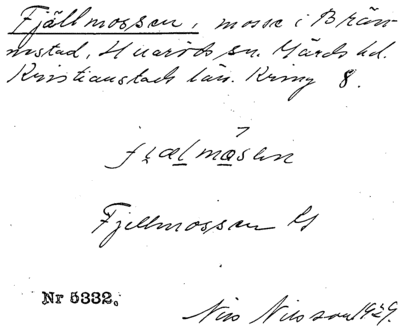 Fjällmossen, mosse i Brän-
nestad, Huaröds sn. Gärds hd.
Kristianstads län. Kring 8.
Fjellmossen
Nr 5332.
Nils Nilsson 1929.